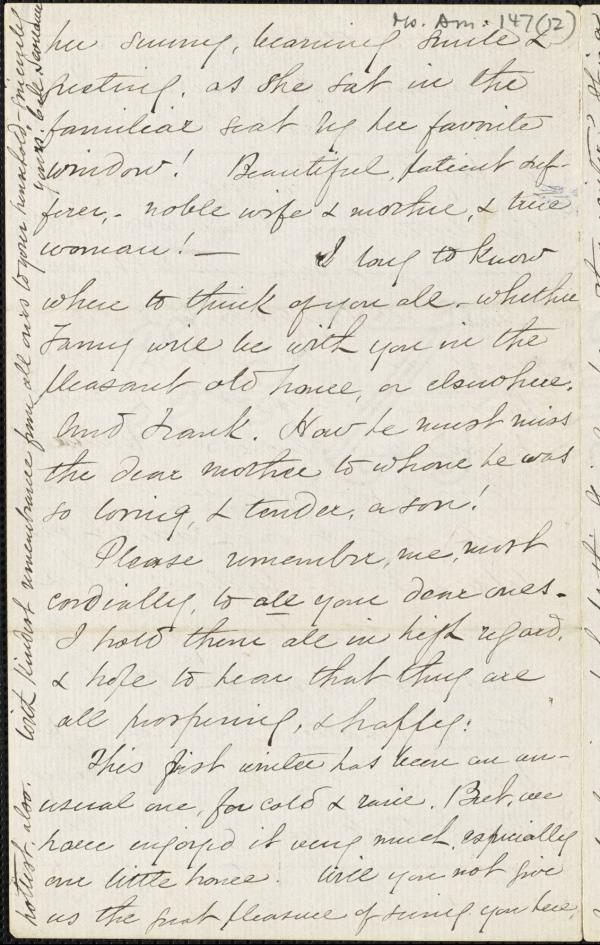 Ms. Am. 147(12)
her sunny, beaming smile &
greeting, as she sat in the
familiar seat by her favorite
window! Beautiful, patient suf-
ferer, - noble wife & mother, & true
woman! — I long to know
where to think of you all - whether
Fanny will be with you in the
pleasant old house, or elsewhere.
And Frank. How he must miss
the dear mother to whom he was
so loving, & tender, a son!
Please remember, me, most
cordially, to all your dear ones -
I hold them all in high regard,
& hope to hear that they are
all prospering, & happy.
This first winter has been an un-
usual one, for cold & rain. But, we
have enjoyed it very much, especially
our little house. Will you not give
us the great pleasure of seeing you here,
hottest, also. With kindest remembrance from all ours to your household - sincerely
yours,